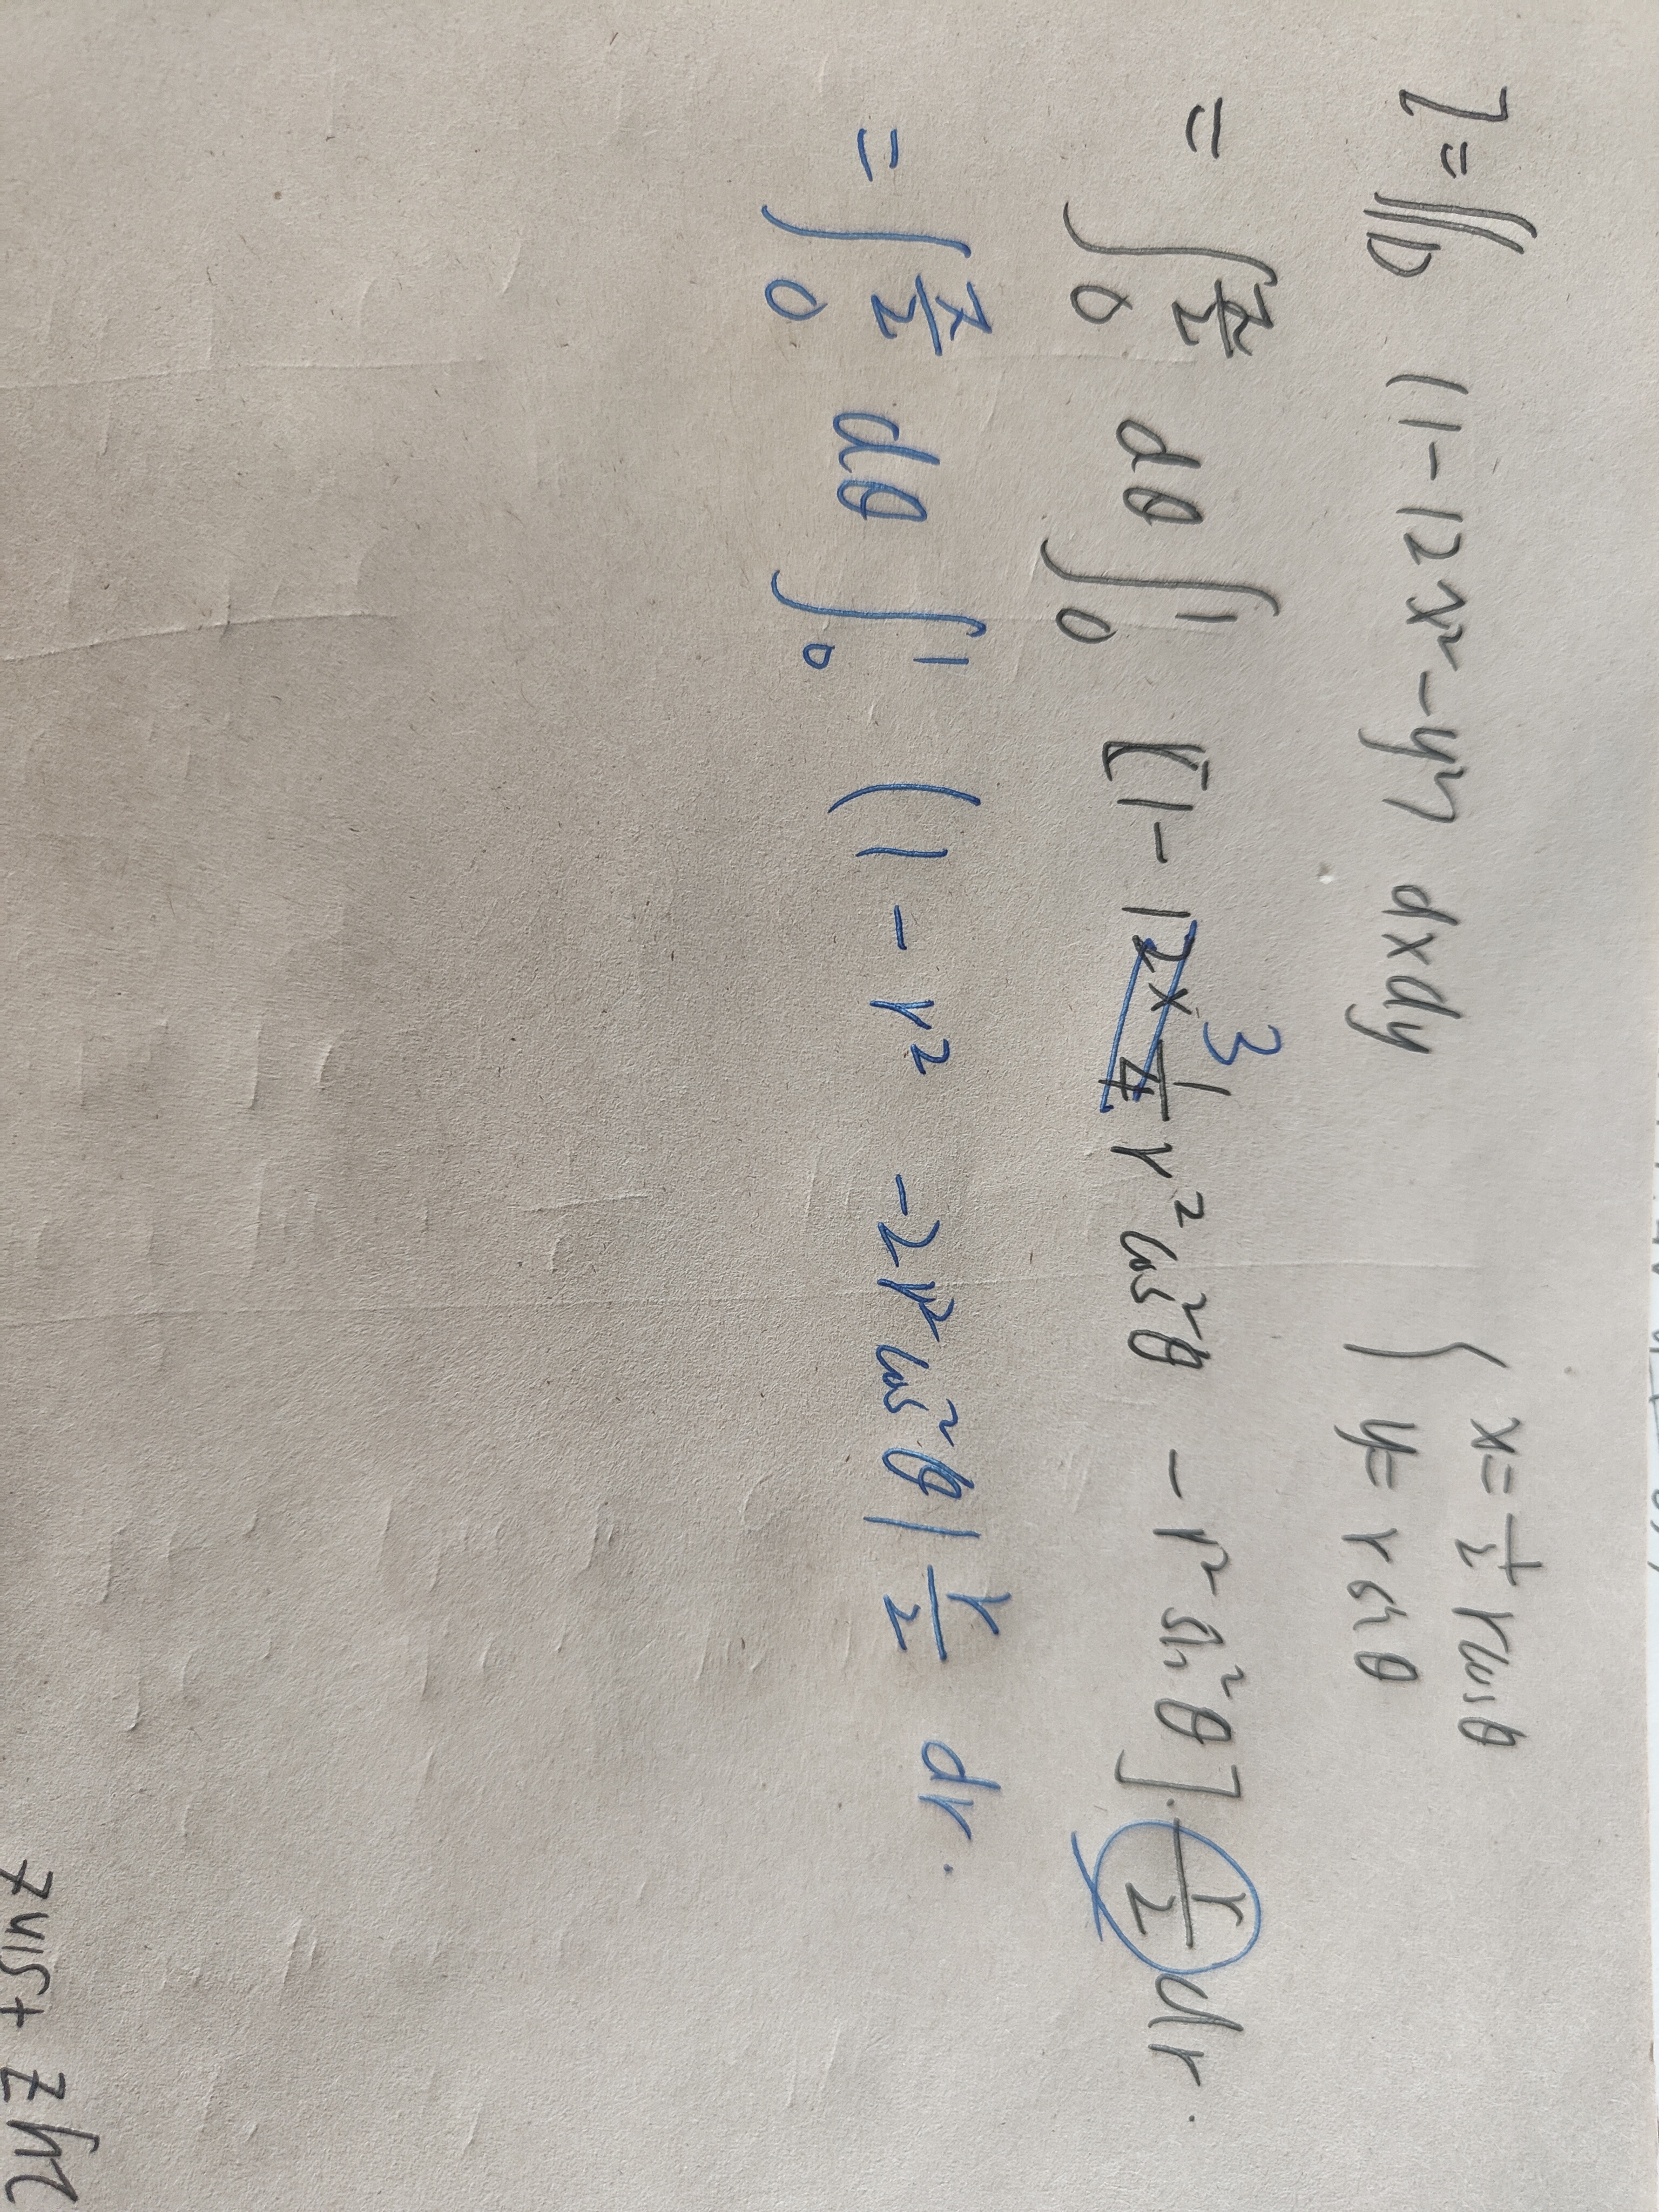 I = ∬_D (1-12x²-y²) dxdy { x = 1/2 rcosθ
y = r sinθ
= ∫_0^{π/2} dθ ∫_0^1 [1-12×1/4 r² cos²θ - r² sin²θ]·r/2 dr.
3
= ∫_0^{π/2} dθ ∫_0^1 (1-r² -2r²cos²θ) r/2 dr.